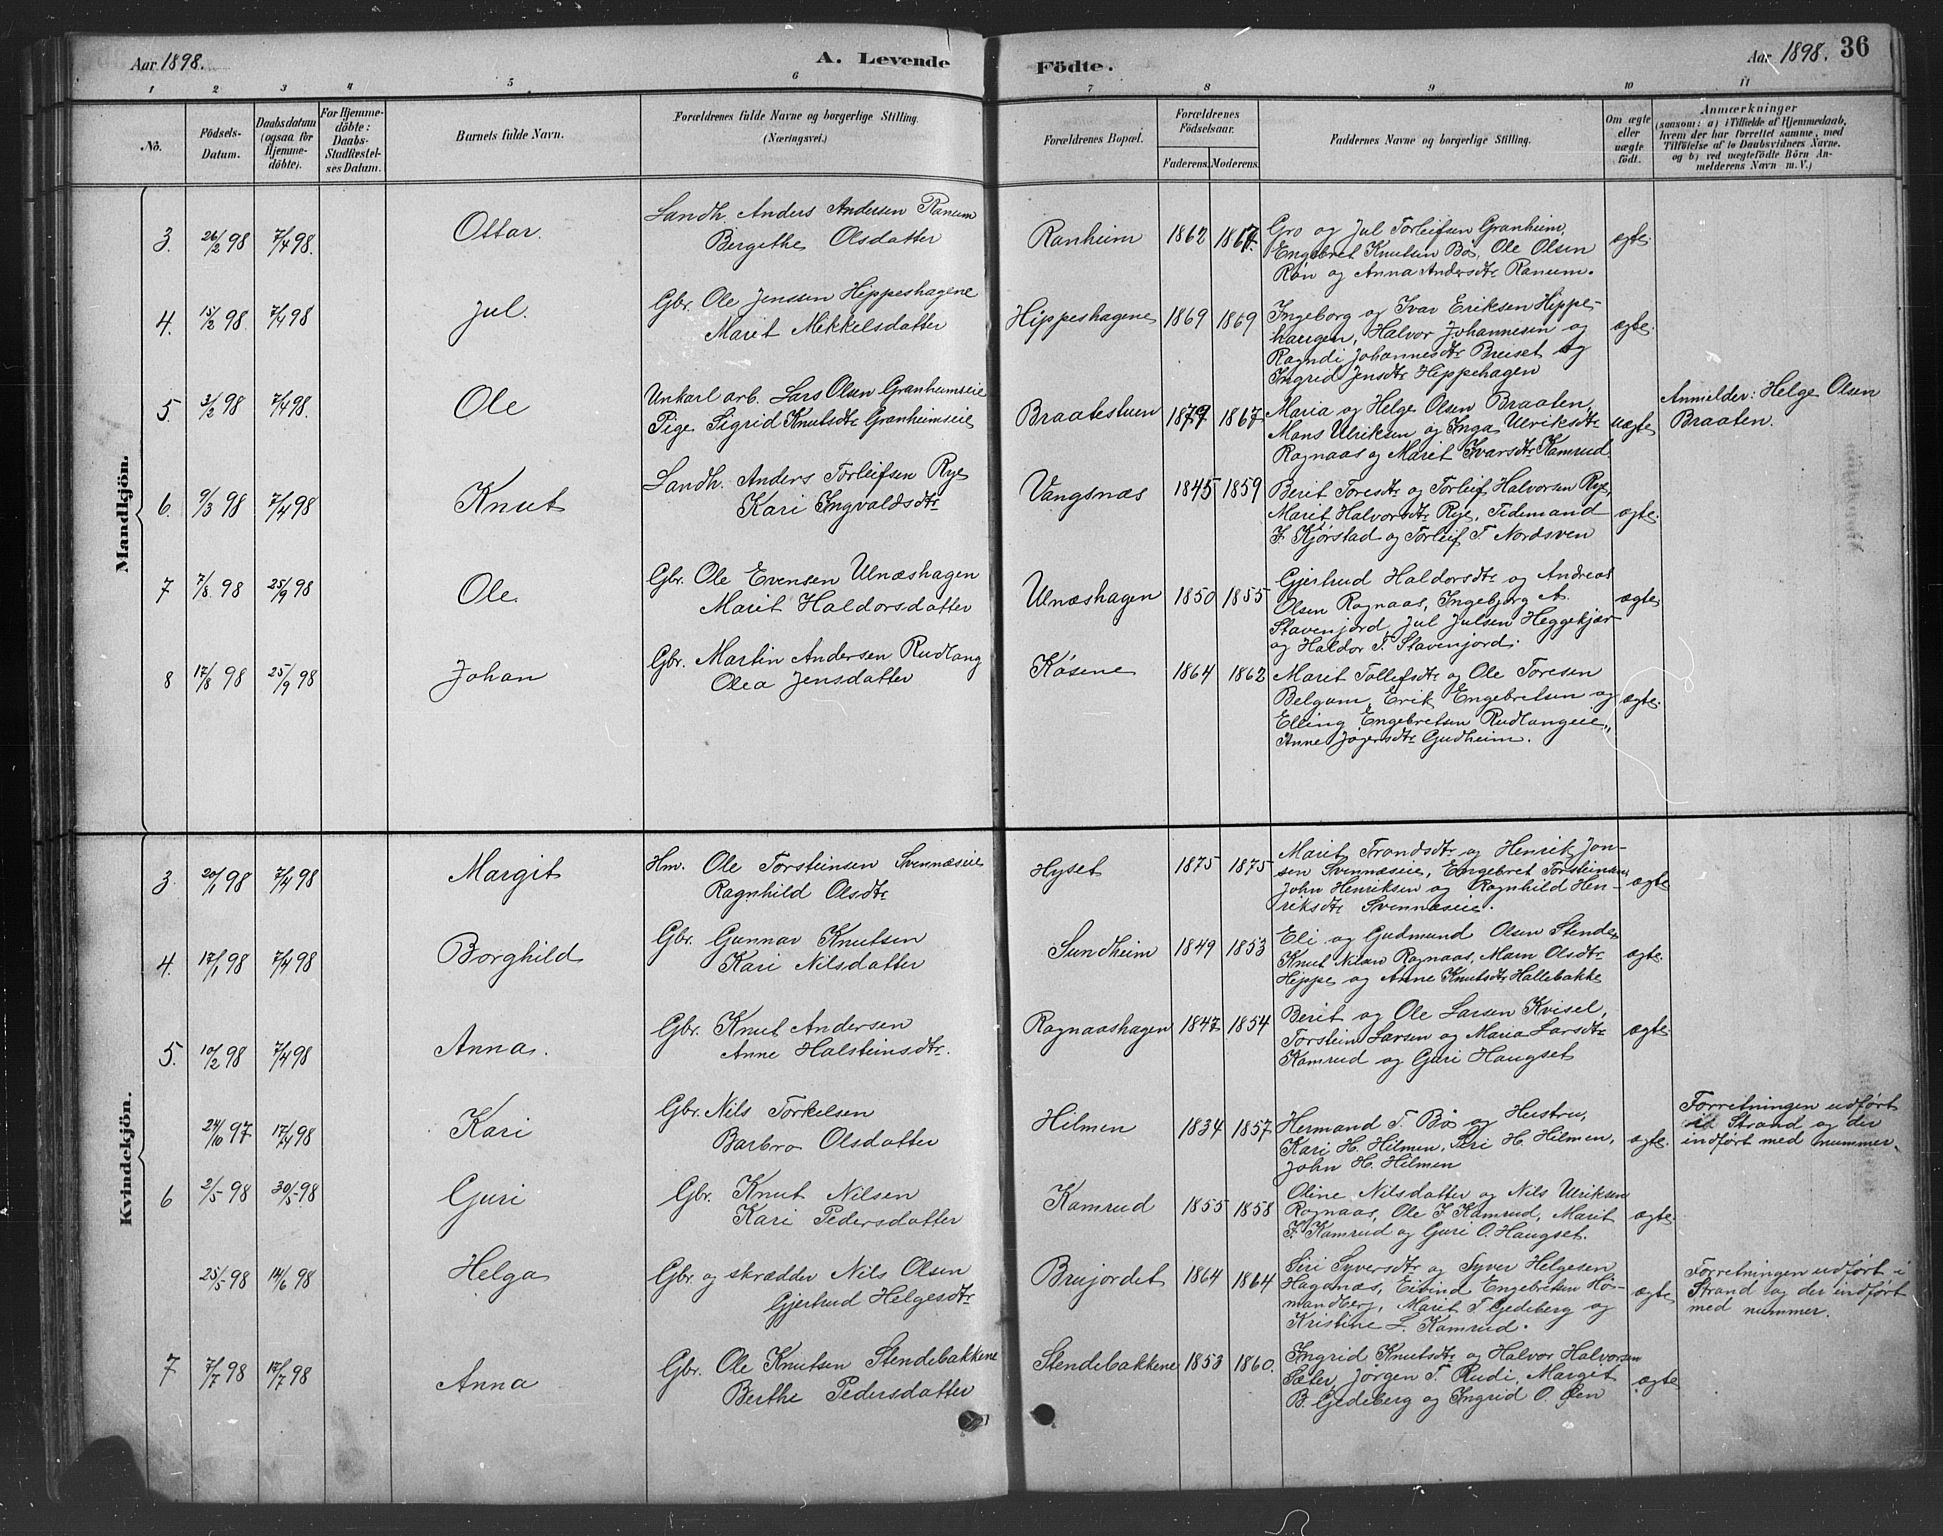 Aar 1898. A. Levende Födte. Aar 1898. 36
1 2 3 4 5 6 7 8 9 10 11
No. Födsels-Datum. Daabsdatum (ogsaa for Hjemmedöbte). For Hjemmedöbte: Daabs-Stadfestelses Datum. Barnets fulde Navn. Forældrenes fulde Navne og borgerlige Stilling. (Næringsvei.) Forældrenes Bopæl. Forældrenes Födselsaar. Faderens. Moderens. Faddernes Navne og borgerlige Stilling. Om ægte eller uægte födt. Anmærkninger (saasom: a) i Tilfælde af Hjemmedaab, hvem der har forrettet samme, med Tilföielse af to Daabsvidners Navne, og b) ved uægtefödte Börn Anmelderens Navn m. V.)
Mandkjön.
3. 26/2 98 7/4 98. Ottar. Landh. Anders Andersen Ranum
Bergethe Olsdatter
Ranheim 1862 1867. Gro og Jul Torleifsen Granheim,
Engebret Knutsen Bö, Ole Olsen
Røn og Anna Andersdtr Ranum.
ægte.
4. 15/2 98. 7/4 98 Jul. Gbr. Ole Jenssen Hippeshagene
Marit Mikkelsdatter
Hippeshagene 1869 1869 Ingeborg og Ivar Eriksen Hippe-
haugen, Halvor Johannesen og
Ragndi Johannesdtr Breiset og
Ingrid Jensdtr Hippehagen
ægte.
5. 3/2 98 7/4 98. Ole Unkarl arb. Lars Olsen Granheimseie
Pige Sigrid Knutsdtr Granheimseie
Braatestuen 1867 Maria og Helge Olsen Braaten,
Mons Ulriksen og Inga Ulriksdtr
Ragnaas og Marit Ivarsdtr Kamrud
uægte
Anmelder: Helge Olsen
Braaten.
6. 9/3 98 7/4 98 Knut Landh. Anders Torleifsen Rye
Kari Ingvaldsdtr
Vangsnæs 1845 1859 Berit Toresdtr og Torleif Halvorsen Rye,
Marit Halvorsdtr Rye, Tidemand
J. Kjörstad og Torleif T. Nordsven
ægte.
7 7/8. 98 25/9 98 Ole Gbr. Ole Evensen Ulnæshagen
Marit Haldorsdatter
Ulnæshagen 1850 1855 Gjertrud Haldorsdtr og Andreas
Olsen Ragnaas, Ingebjørg A.
Stavenjord, Jul Julsen Heggekjær
og Haldor T. Stavenjord.
ægte
8 17/8 98 25/9 98 Johan Gbr. Martin Andersen Rudlang
Olea Jensdatter
Kösene 1864 1862 Marit Tollefsdtr og Ole Toresen
Belgum, Erik Engebretsen og
Elling Engebretsen Rudlangeie,
Anne Jøgersdtr Gudheim.
ægte.
Kvindekjön.
3. 20/1 98 7/4 98 Margit Hm. Ole Torsteinsen Svennæseie
Ragnhild Olsdtr
Hyset 1875 1875 Marit Trondsdtr og Henrik Jon-
sen Svennæseie, Engebret Torsteinsen,
John Henriksen og Ragnhild Hen-
riksdtr Svennæseie.
ægte
4. 17/1 98 7/4 98 Borghild Gbr. Gunnar Knutsen
Kari Nilsdatter
Sundheim 1849 1853 Eli og Gudmund Olsen Stende,
Knut Nilsen Ragnaas, Marn Olsdtr
Hippe og Anne Knutsdtr Hallebakke
ægte.
5. 10/2 98 7/4 98 Anna. Gbr. Knut Andersen
Anne Halsteinsdtr.
Ragnaashagen 1847 1854 Berit og Ole Larsen Kvisel,
Torstein Larsen og Maria Larsdtr
Kamrud og Guri Haugset
ægte.
24/10 97 17/4 98 Kari Gbr. Nils Torkelsen
Barbro Olsdatter
Hilmen 1834 1857. Hermand T. Bö og Hustru,
Kari H. Hilmen, Siri H. Hilmen,
John H. Hilmen
ægte.
Forretningen udfört
i Strand og der
indfört med nummer.
6 2/5 98 30/5 98 Guri Gbr. Knut Nilsen
Kari Pedersdatter
Kamrud 1855 1858 Oline Nilsdatter og Nils Ulriksen
Ragnaas, Ole J. Kamrud, Marit
J. Kamrud og Guri O. Haugset.
ægte.
25/5 98 14/6 98 Helga Gbr. og skrædder Nils Olsen
Gjertrud Helgesdtr
Brujordet 1864 1864 Siri Syversdtr og Syver Helgesen
Haganæs, Eivind Engebretsen Hör-
mandberg, Marit T. Gjedeberg og
Kristine L. Kamrud.
ægte
Forretningen udfört i
Strand og der indfört
med nummer.
7 7/7 98 17/7 98 Anna Gbr. Ole Knutsen Stendebakkene
Berthe Pedersdatter
Stendebakkene 1853 1860. Ingrid Knutsdtr og Halvor Halvorsen
Sæter, Jørgen T. Rudi, Margit
B. Gjedeberg og Ingrid O. Øen
ægte